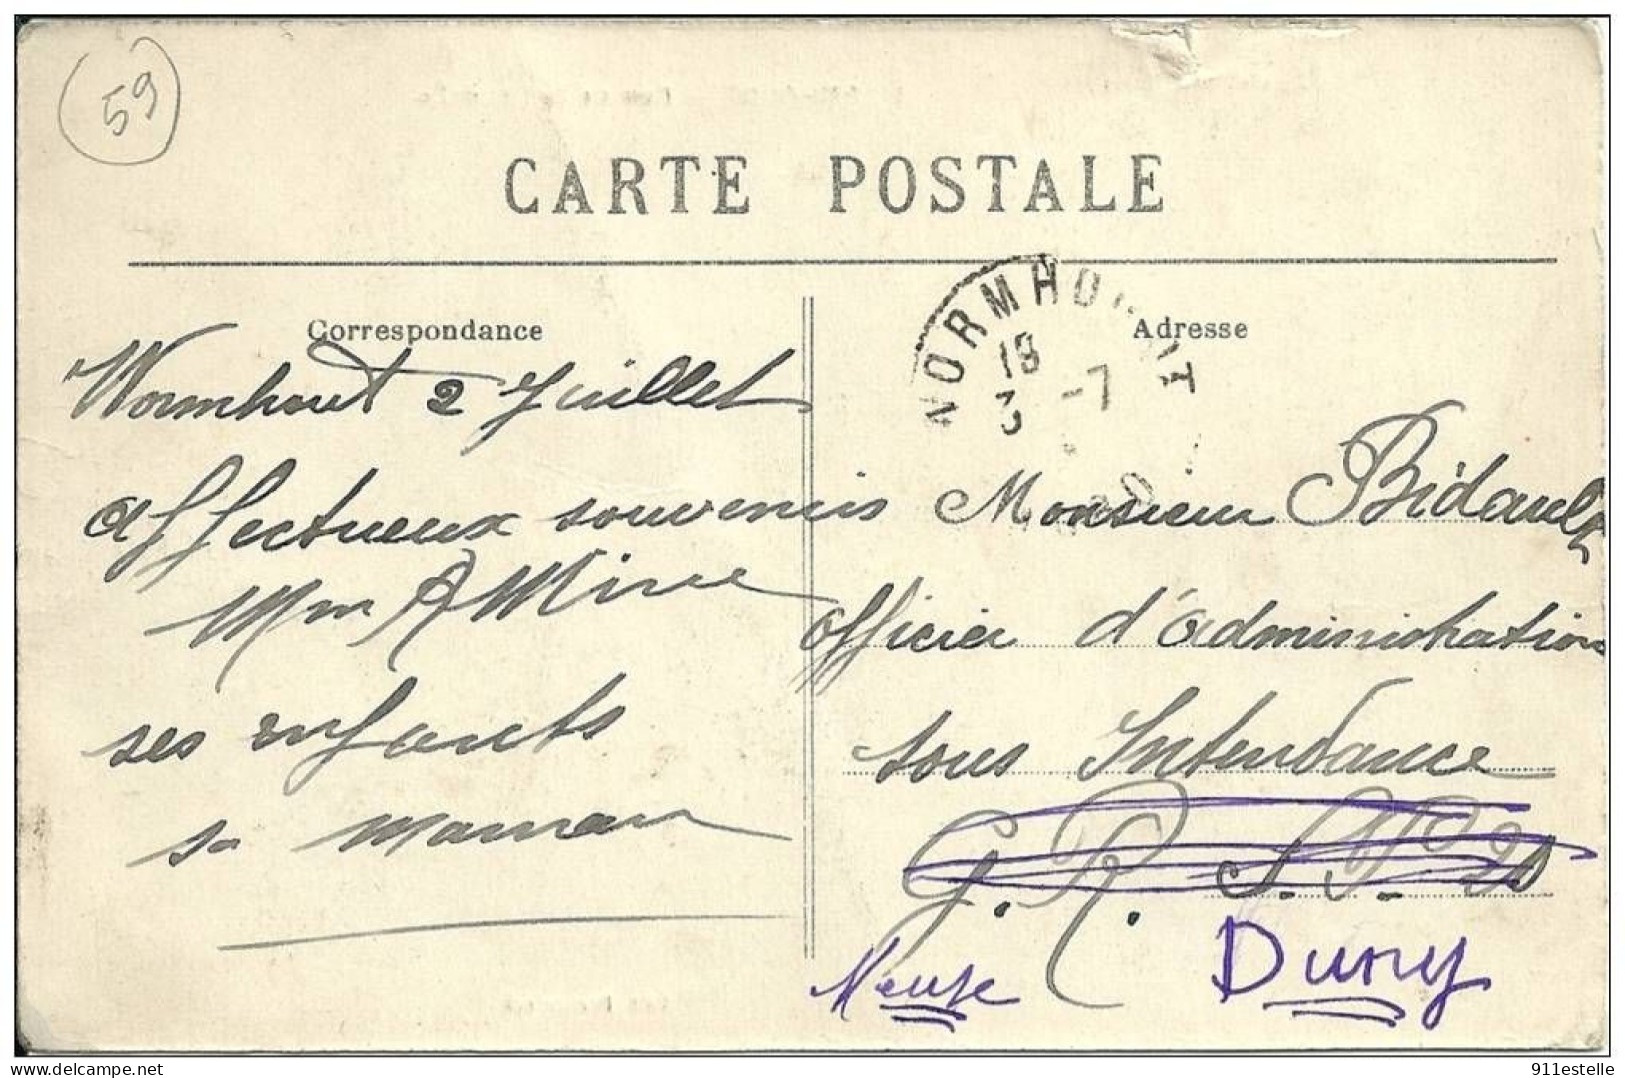 59
CARTE POSTALE
Correspondance
Wormhout 2 Juillet
affectueux souvenirs
Mme
ses enfants
sa maman
WORMHOUDT
18
3 -7
Adresse
Monsieur Bidault
officier d'administration
sous Intendance
G. R.
Meuse
Dugny
delcampe.net
911estelle